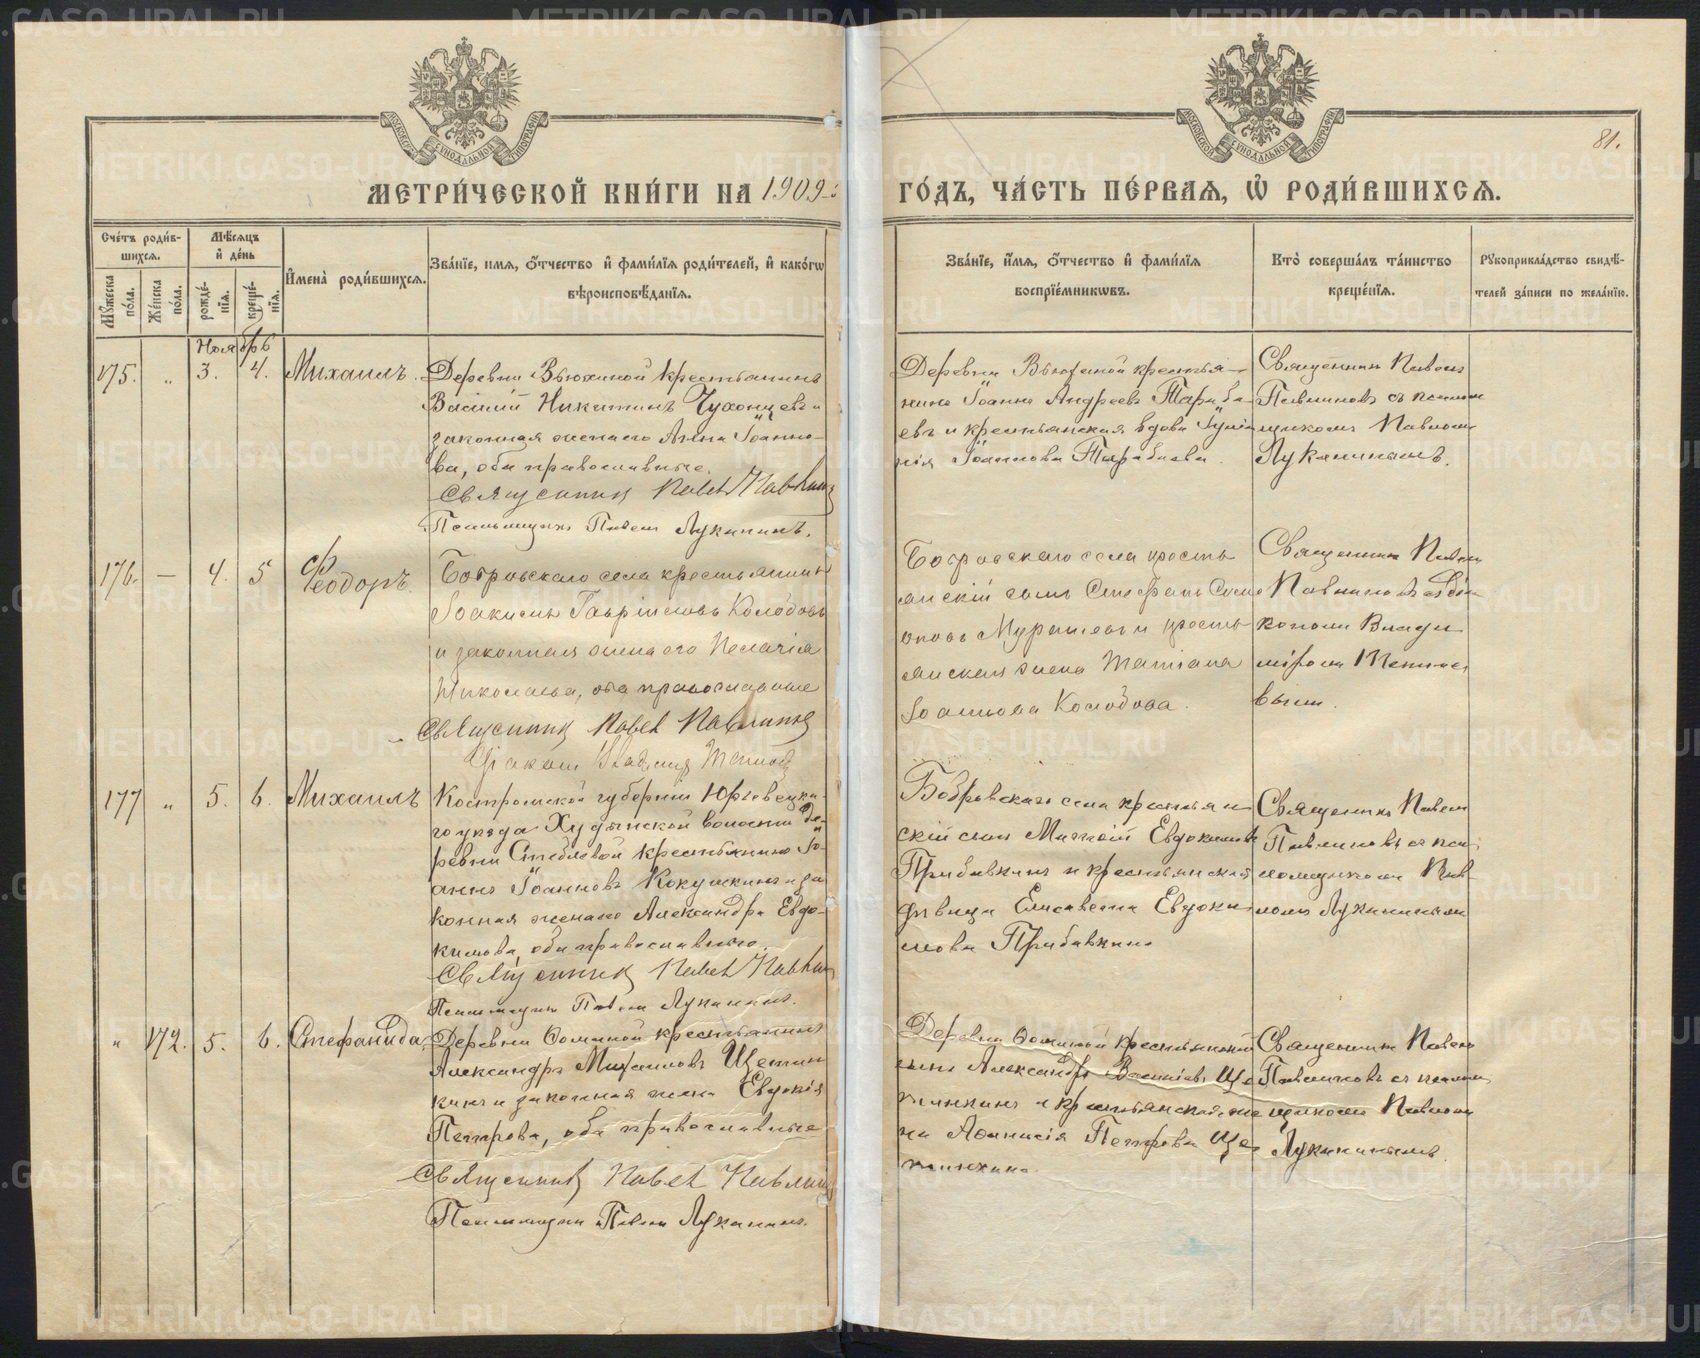 МЕТРИ́ЧЕСКОЙ КНИ́ГИ НА 1909
ГО́ДЪ, ЧА́СТЬ ПЕ́РВАѦ, Ѽ РОДИ́ВШИХСѦ.
81.
Сче́тъ роди́в-
шихсѧ.
Мѣ́сѧцъ
и҆ де́нь
Мꙋ́жеска по́ла.
Же́нска по́ла.
рожде́-нїѧ.
креще́-нїѧ.
И҆мена̀ роди́вшихсѧ.
Зва́нїе, имѧ, ѻ҆́тчество и҆ фами́лїѧ роди́телей, и҆ како́гѡ
вѣроисповѣ́данїѧ.
Зва́нїе, и҆́мѧ, ѻ҆́тчество и҆ фами́лїѧ
воспрїе́мникѡвъ.
Кто̀ соверша́лъ та́инство
креще́нїѧ.
Рꙋкоприкла́дство свидѣ́-
телей за́писи по жела́нїю.
Ноябрь
175. „ 3. 4. Михаилъ.
Деревни Вьюхиной крестьянинъ
Василий Никитинъ Чухонцевъ и
законная жена его Анна Іоанно-
ва, оба православные.
Священникъ Павелъ Павлинъ
Псаломщикъ Павелъ Луканинъ.
Деревни Вьюхиной крестья-
нинъ Іоаннъ Андреевъ Тараба-
евъ и крестьянская вдова
Іоаннова Тарабаева.
Священникъ Павелъ
Павлиновъ съ псалом
щикомъ Павломъ
Луканинымъ.
176. — 4. 5 Ѳеодоръ.
Бобровскаго села крестьянинъ
Іоакимъ Гавріиловъ Колобовъ
и законная жена его Пелагія
Николаева, оба православные
Священникъ Павелъ Павлинъ
Діаконъ Владимір
Бобровскаго села кресть
янскій сынъ Стефанъ
и кресть
янская жена Татіана
Іоаннова Колобова.
Священникъ Павелъ
Павлиновъ съ діа
кономъ Влади
міромъ
вымъ.
177 „ 5. 6. Михаилъ
Костромской губерніи Юрьевецка-
го уѣзда Худынской волости де-
ревни Стеблевой крестьянинъ Іо-
аннъ Іоанновъ Кокушкинъ и за
конная жена его Александра Евдо-
кимова, оба православные.
Священникъ Павелъ Павлин
Псаломщикъ Павелъ Луканинъ.
Бобровскаго села крестьян
скій сынъ Матѳій Евдокимовъ
Прибавкинъ и крестьянская
дѣвица Елисавета Евдоки
мова Прибавкина
Священникъ Павелъ
Павлиновъ съ пса
ломщикомъ Пав-
ломъ Луканинымъ
„ 172. 5. 6. Стефанида.
Деревни Ѳоминой крестьянинъ
Александръ Михаиловъ Щетин
кинъ и законная жена Евдокія
Петрова, оба православные
Священникъ Павелъ Павлинъ
Псаломщикъ Павелъ Луканинъ.
Деревни Ѳоминой крестьянскій
сынъ Александръ Василіевъ Ще
тинкинъ и крестьянская же
на Аѳанасія Петрова Ще-
тинкина.
Священникъ Павелъ
Павлиновъ съ псалом
щикомъ Павломъ
Луканинымъ.
METRIKI.GASO-URAL.RU